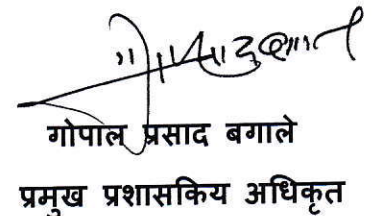 गोपाल प्रसाद बगाले
प्रमुख प्रशासकिय अधिकृत